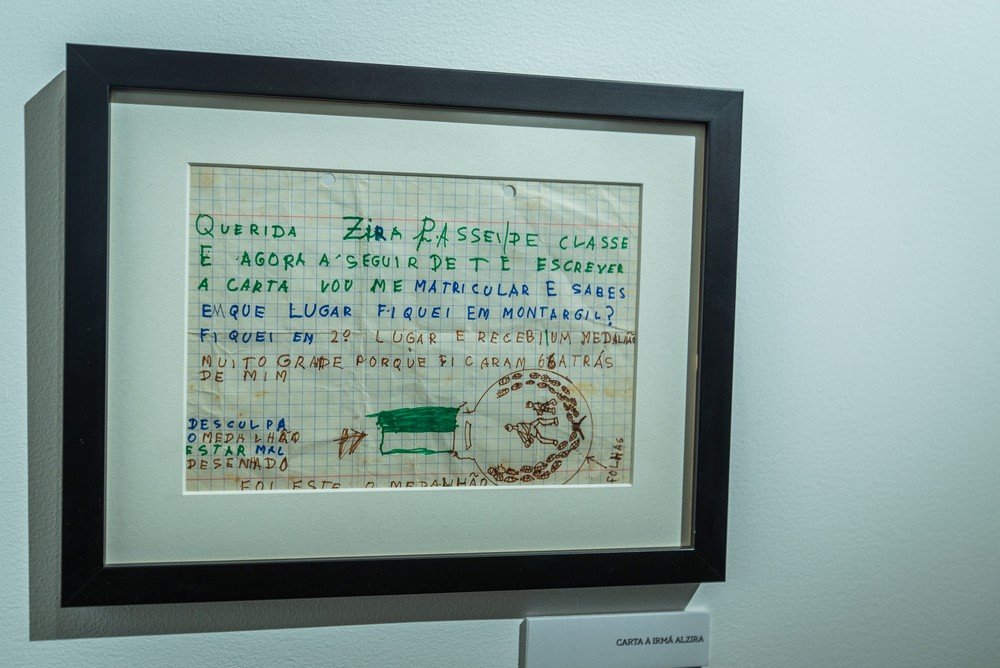 QUERIDA ZIRA PASSEI/DE CLASSE
E AGORA A SEGUIR DE TE ESCREVER
A CARTA VOU ME MATRICULAR E SABES
EM QUE LUGAR FIQUEI EM MONTARGIL?
FIQUEI EM 2º LUGAR E RECEBI UM MEDALHÃO
MUITO GRANDE PORQUE FICARAM 66 ATRÁS
DE MIM
DESCULPA
O MEDALHÃO
ESTAR MAL
DESENHADO
FOLHAS
FOI ESTE O MEDANHÃO
CARTA À IRMÃ ALZIRA